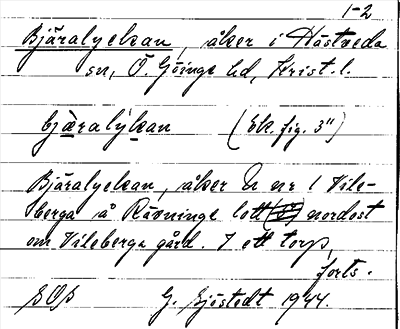 1-2
Bjäralyckan, åker i Hästveda
sn, Ö. Göinge hd, Krist. l.
bjæralýkan (Ek. fig. 3")
Bjäralyckan, åker En nr 1 Vile-
berga å Rävninge lott nordost
om Vileberga gård. I ett torp,
forts.
SOS G. Sjöstedt 1944.